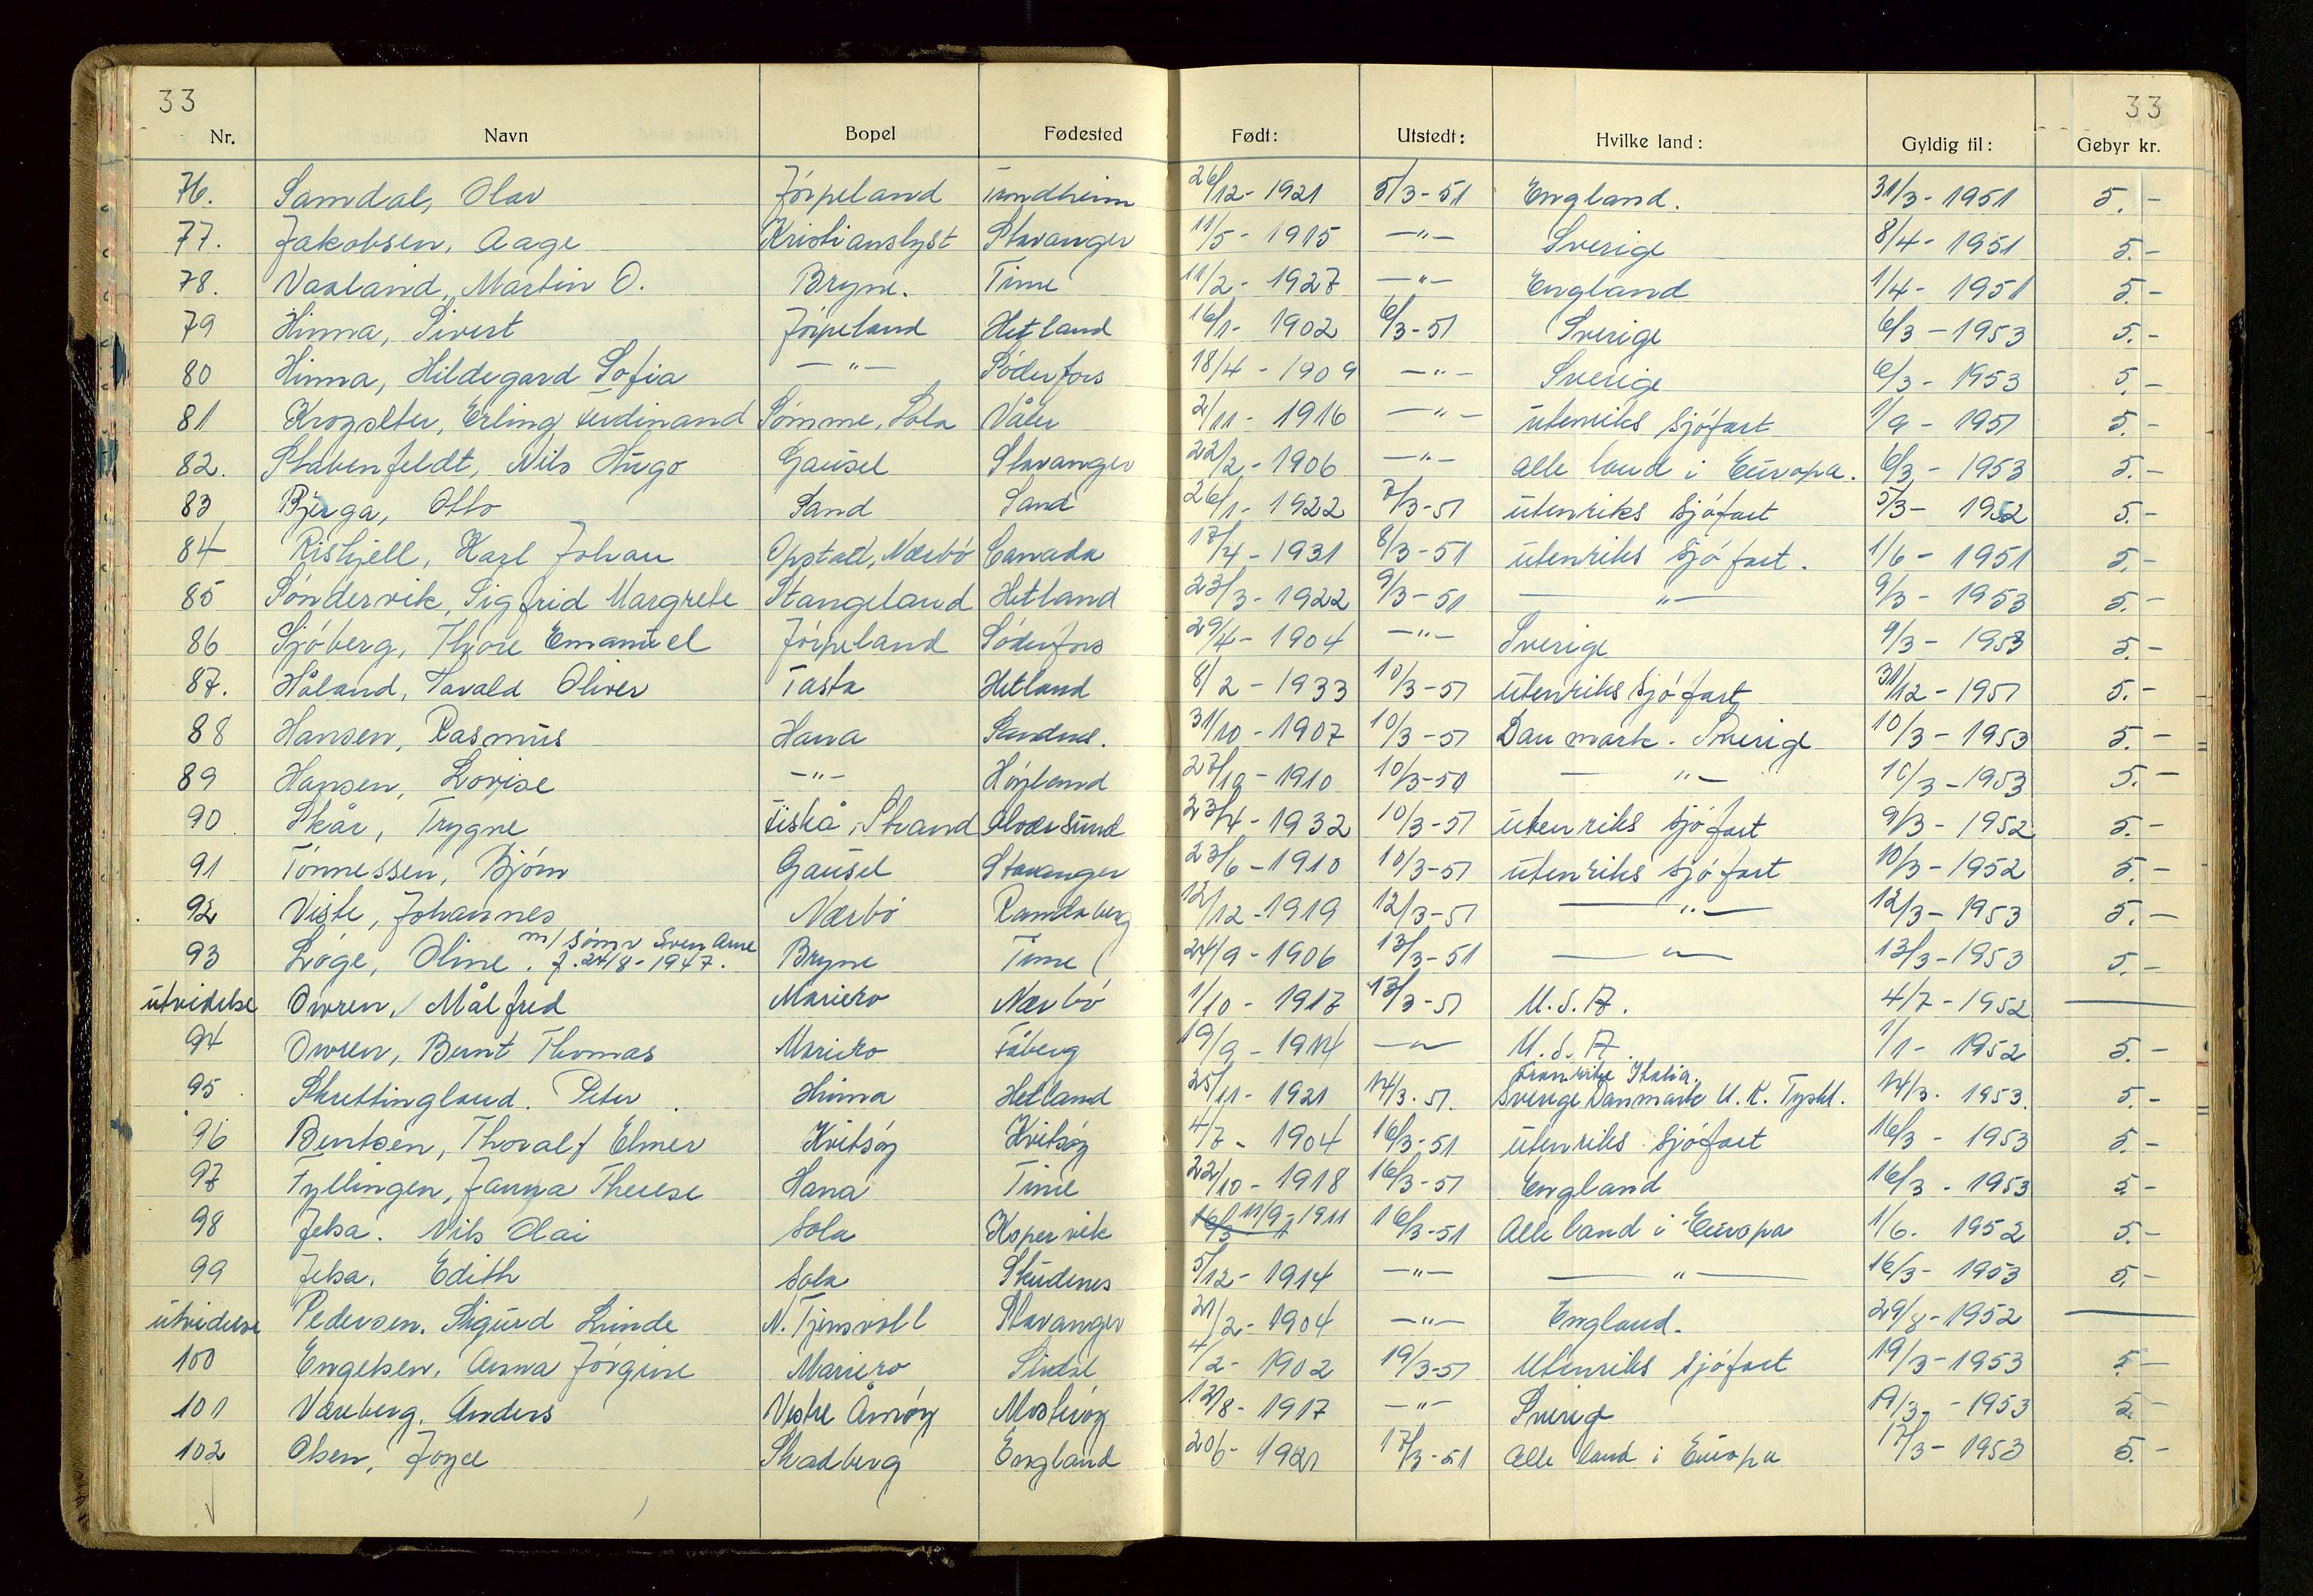 33 33
Nr. Navn Bopel Fødested Født: Utstedt: Hvilke land: Gyldig til: Gebyr kr.
76. Samdal, Olav Jørpeland Trondheim 26/12-1921 5/3-51 England. 31/3-1951 5.-
77. Jakobsen, Aage Kristianslyst Stavanger 11/5-1915 -"- Sverige 8/4-1951 5.-
78. Vaaland, Martin O. Bryne. Time 11/2-1927 -"- England 1/4-1951 5.-
79 Hinna, Sivert Jørpeland Hetland 16/1-1902 6/3-51 Sverige 6/3-1953 5.-
80 Hinna, Hildegard Sofia -"- Söderfors 18/4-1909 -"- Sverige 6/3-1953 5.-
81 Erling Ferdinand Sømme, Sola Våler 2/11-1916 -"- utenriks sjøfart 1/9-1951 5.-
82. Stabenfeldt, Nils Hugo Gausel Stavanger 22/2-1906 -"- alle land i Europa. 6/3-1953 5.-
83 Bjerga, Otto Sand Sand 26/1-1922 7/3-51 utenriks sjøfart 5/3-1952 5.-
84 Riskjell, Karl Johan Opstad, Nærbø Canada 17/4-1931 8/3-51 utenriks sjøfart. 1/6-1951 5.-
85 Søndervik, Sigfrid Margrete Stangeland Hetland 23/3-1922 9/3-51 -"- 9/3-1953 5.-
86 Sjöberg, Thore Emanuel Jørpeland Söderfors 29/4-1904 -"- Sverige 9/3-1953 5.-
87. Håland, Tavald Oliver Tasta Hetland 8/2-1933 10/3-51 utenriks sjøfart 31/12-1951 5.-
88 Hansen, Rasmus Hana Sandnes. 31/10-1907 10/3-51 Danmark. Sverige 10/3-1953 5.-
89 Hansen, Lovise -"- Høyland 27/10-1910 10/3-51 -"- 10/3-1953 5.-
90 Skår, Trygve Fiskå, Strand Alversund 23/4-1932 10/3-51 utenriks sjøfart 9/3-1952 5.-
91 Tönnessen, Bjørn Gausel Stavanger 23/6-1910 10/3-51 utenriks sjøfart 10/3-1952 5.-
92 Viste, Johannes Nærbø Randaberg 12/12-1919 12/3-51 -"- 12/3-1953 5.-
m/ sønn Sven Arne
93 Løge, Oline. f. 24/8-1947. Bryne Time 24/9-1906 13/3-51 -"- 13/3-1953 5.-
utvidelse Owren, Målfred Mariero Nærbø 1/10-1917 13/3-51 U.S.A. 4/7-1952
94 Owren, Bernt Thomas Mariero Fåberg 19/9-1914 -"- U.S.A. 1/1-1952 5.-
Frankrike Italia.
95 Skrettingland. Peter Hinna Hetland 25/11-1921 14/3.51. Sverige Danmark U.K. Tyskl. 14/3.1953. 5.-
96 Bentsen, Thoralf Elmer Kvitsøy Kvitsøy 4/7-1904 16/3-51 utenriks sjøfart 16/3-1953 5.-
97 Tyllingen, Janna Therese Hana Time 22/10-1918 16/3-51 England 16/3-1953 5.-
98 Jelsa. Nils Olai Sola Kopervik 11/9-1911 16/3-51 Alle land i Europa 1/6.1952 5.-
99 Jelsa. Edith Sola Skudenes 5/12-1914 -"- -"- 16/3-1953 5.-
utvidelse Pedersen. Sigurd Lunde N. Tjensvoll Stavanger 21/2-1904 -"- England. 29/8-1952
100 Engelsen, Anna Jørgine Mariero Sirdal 4/2-1902 19/3-51 Utenriks sjøfart 19/3-1953 5.-
101 Vareberg. Anders Vestre Åmøy Mosterøy 12/8-1917 -"- Sverige 19/3-1953 5.-
102 Olsen, Joyce Skadberg England 20/6-1921 17/3-51 Alle land i Europa 17/3-1953 5.-